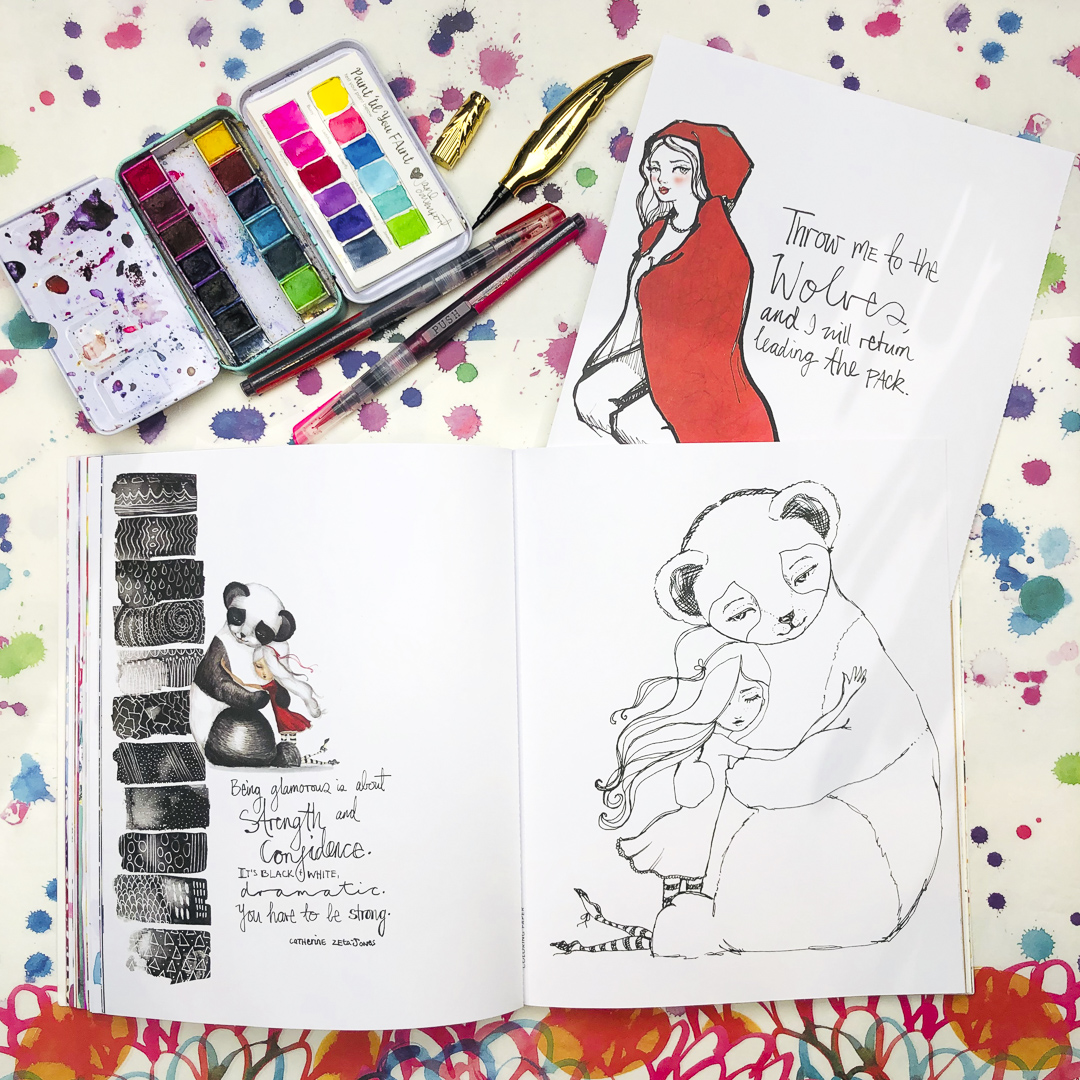 Paint 'til You FAint
PUSH
Throw me to the
Wolves,
and I will return
leading the PACK.
Being glamorous is about
Strength and
Confidence.
IT'S BLACK + WHITE,
dramatic.
You have to be strong.
CATHERINE ZETA-JONES